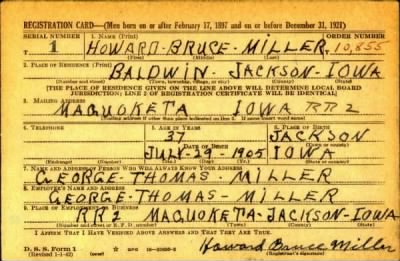 REGISTRATION CARD—(Men born on or after February 17, 1897 and on or before December 31, 1921)
SERIAL NUMBER 1. NAME (Print) ORDER NUMBER
T 1 HOWARD-BRUCE-MILLER 10,855
2. PLACE OF RESIDENCE (Print)
BALDWIN- JACKSON-IOWA
(Number and street) (Town, township, village, or city) (County) (State)
[THE PLACE OF RESIDENCE GIVEN ON THE LINE ABOVE WILL DETERMINE LOCAL BOARD
JURISDICTION; LINE 2 OF REGISTRATION CERTIFICATE WILL BE IDENTICAL]
3. MAILING ADDRESS
MAQUOKETA IOWA RR2
[Mailing address if other than place indicated on line 2. If same insert word same]
4. TELEPHONE 5. AGE IN YEARS 6. PLACE OF BIRTH
37 JACKSON
DATE OF BIRTH
JULY-29-1905 IOWA
(Exchange) (Number) (Mo.) (Day) (Yr.) (State or country)
7. NAME AND ADDRESS OF PERSON WHO WILL ALWAYS KNOW YOUR ADDRESS
GEORGE-THOMAS-MILLER
8. EMPLOYER'S NAME AND ADDRESS
GEORGE-THOMAS-MILLER
9. PLACE OF EMPLOYMENT OR BUSINESS
RR2 MAQUOKETA-JACKSON-IOWA
(Number and street or R. F. D. number) (Town) (County) (State)
I AFFIRM THAT I HAVE VERIFIED ABOVE ANSWERS AND THAT THEY ARE TRUE.
D. S. S. Form 1
(Revised 1-1-42) (over)
Howard Bruce Miller
(Registrant's signature)